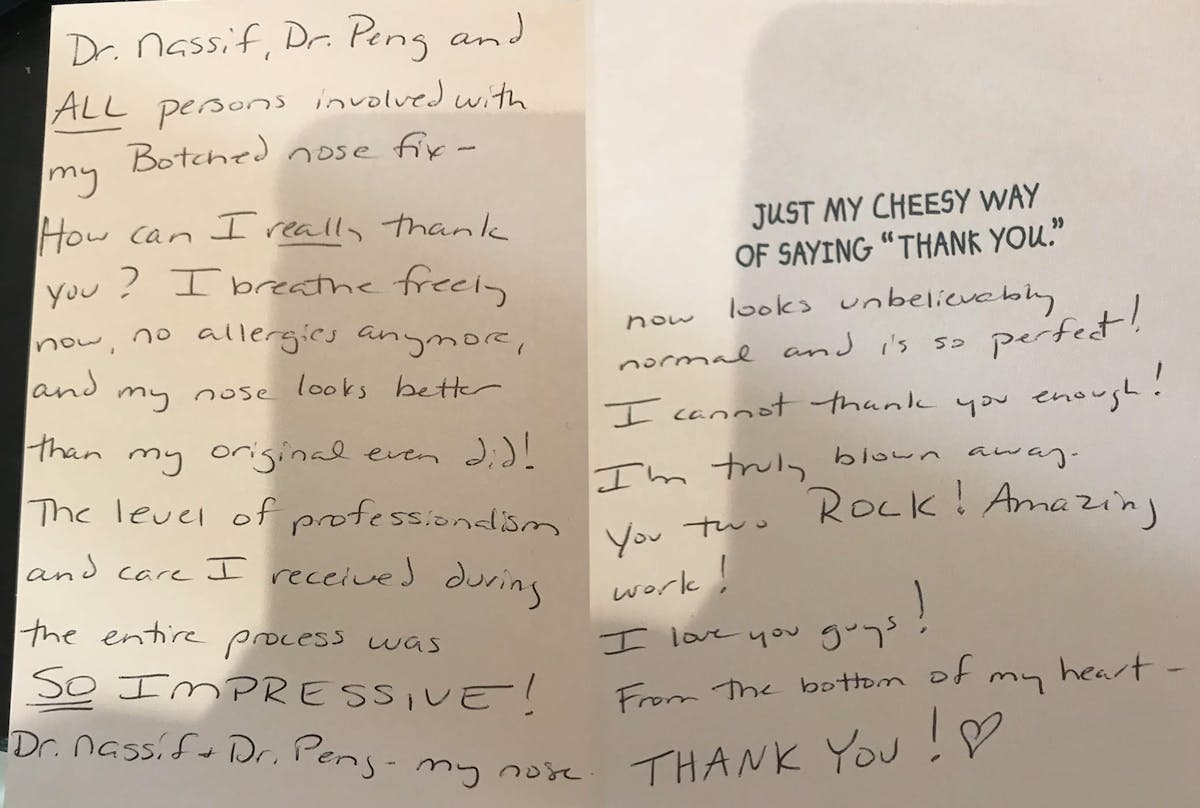 Dr. Nassif, Dr. Peng and
ALL persons involved with
my Botched nose fix -
How can I really thank
you? I breathe freely
now, no allergies anymore,
and my nose looks better
than my original even did!
The level of professionalism
and care I received during
the entire process was
SO IMPRESSIVE!
Dr. Nassif + Dr. Peng - my nose
JUST MY CHEESY WAY
OF SAYING “THANK YOU.”
now looks unbelievably
normal and is so perfect!
I cannot thank you enough!
I'm truly blown away.
You two ROCK! Amazing
work!
I love you guys!
From the bottom of my heart -
THANK YOU! ♡